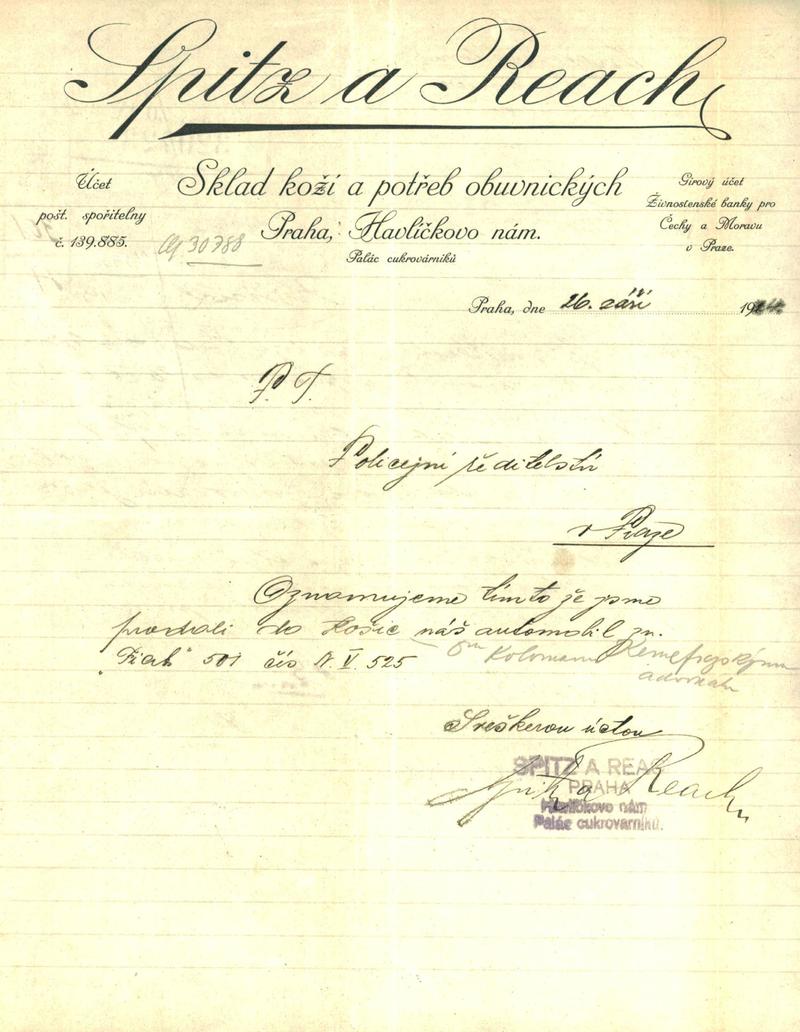 Spitz a Reach
Sklad koží a potřeb obuvnických
Praha, Havlíčkovo nám.
Palác cukrovárníků
Účet
pošt. spořitelny
č. 139.885.
30788
Girový účet
Živnostenské banky pro
Čechy a Moravu
v Praze.
Praha, dne 26. září 19
P. T.
Policejní ředitelství
v Praze
Oznamujeme tímto že jsme
prodali do Košic náš automobil zn.
Kolomanu
"Fiat" 501 čís N. V. 525
advokátu
S veškerou úctou
SPITZ A REAC
PRAHA
Havlíčkovo nám
Palác cukrovarníků.
Spitz a Reach